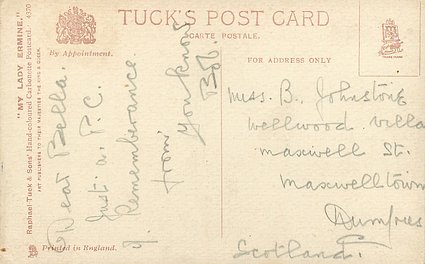 TUCK'S POST CARD
CARTE POSTALE.
By Appointment.
FOR ADDRESS ONLY
"MY LADY ERMINE."
Raphael Tuck & Sons' Hand-coloured Carbonette Postcard. 4070
ART PUBLISHERS TO THEIR MAJESTIES THE KING & QUEEN.
Printed in England.
Dear Bella.
Just a. P.C.
of Rememberance
from
You know
Miss. B. Johnstone
Wellwood Villa
Maxwell St.
Maxwelltown
Dumfries
Scotland